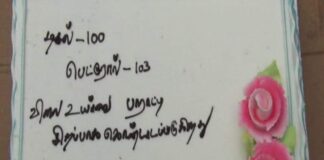 டீசல் - 100
பெட்ரோல் - 103
விலை உயர்வை பாராட்டி
சிறப்பாக கொண்டாடப்படுகிறது